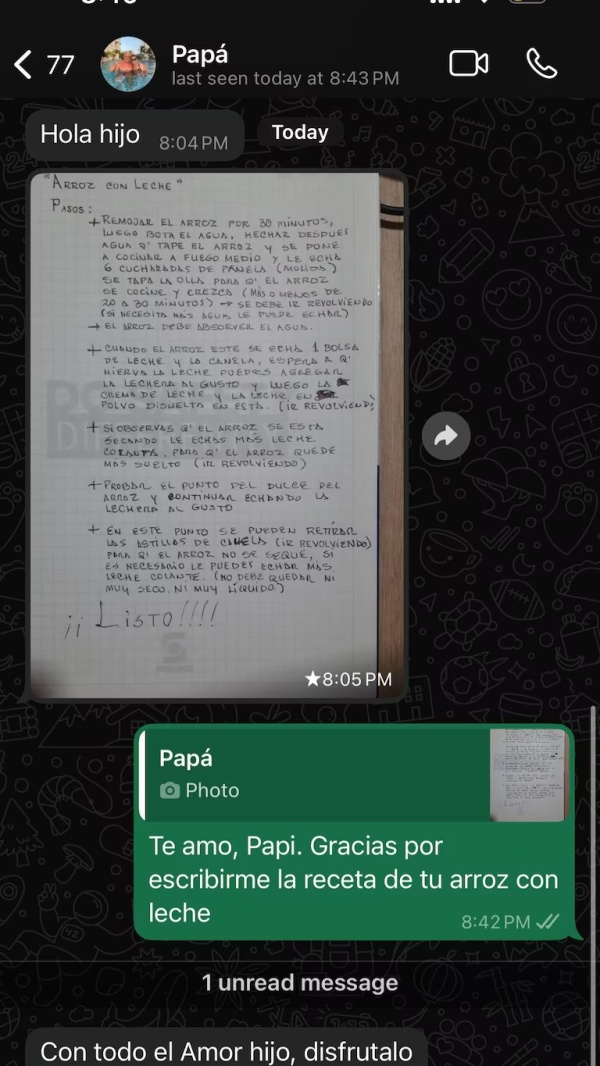 77
Papá
last seen today at 8:43 PM
Hola hijo 8:04 PM
Today
"ARROZ CON LECHE"
PASOS:
+ REMOJAR EL ARROZ POR 30 MINUTOS,
LUEGO BOTA EL AGUA, HECHAR DESPUES
AGUA Q' TAPE EL ARROZ Y SE PONE
A COCINAR A FUEGO MEDIO Y LE ECHA
6 CUCHARADAS DE PANELA (MOLIDA)
SE TAPA LA OLLA PARA Q' EL ARROZ
SE COCINE Y CREZCA (MÁS O MENOS DE
20 A 30 MINUTOS) → SE DEBE IR REVOLVIENDO
(SI NECESITA MÁS AGUA LE PUEDE ECHAR)
→ EL ARROZ DEBE ABSORVER EL AGUA.
+ CUANDO EL ARROZ ESTE SE ECHA 1 BOLSA
DE LECHE Y LA CANELA, ESPERA A Q'
HIERVA LA LECHE PUEDES AGREGAR
LA LECHERA AL GUSTO Y LUEGO LA
CREMA DE LECHE Y LA LECHE EN
POLVO DISUELTA EN ESTA. (IR REVOLVIENDO
+ SI OBSERVAS Q' EL ARROZ SE ESTA
SECANDO LE ECHAS MAS LECHE
, PARA Q' EL ARROZ QUEDE
MAS SUELTO (IR REVOLVIENDO)
+ PROBAR EL PUNTO DEL DULCE DEL
ARROZ Y CONTINUAR ECHANDO LA
LECHERA AL GUSTO
+ EN ESTE PUNTO SE PUEDEN RETIRAR
LAS ASTILLAS DE CANELA (IR REVOLVIENDO)
PARA Q' EL ARROZ NO SE SEQUE, SI
ES NECESARIO LE PUEDES ECHAR MAS
LECHE COLANTE. (NO DEBE QUEDAR NI
MUY SECO, NI MUY LÍQUIDO.)
¡¡ LISTO!!!!
★8:05 PM
Papá
Photo
Te amo, Papi. Gracias por
escribirme la receta de tu arroz con
leche 8:42 PM
1 unread message
Con todo el Amor hijo, disfrutalo